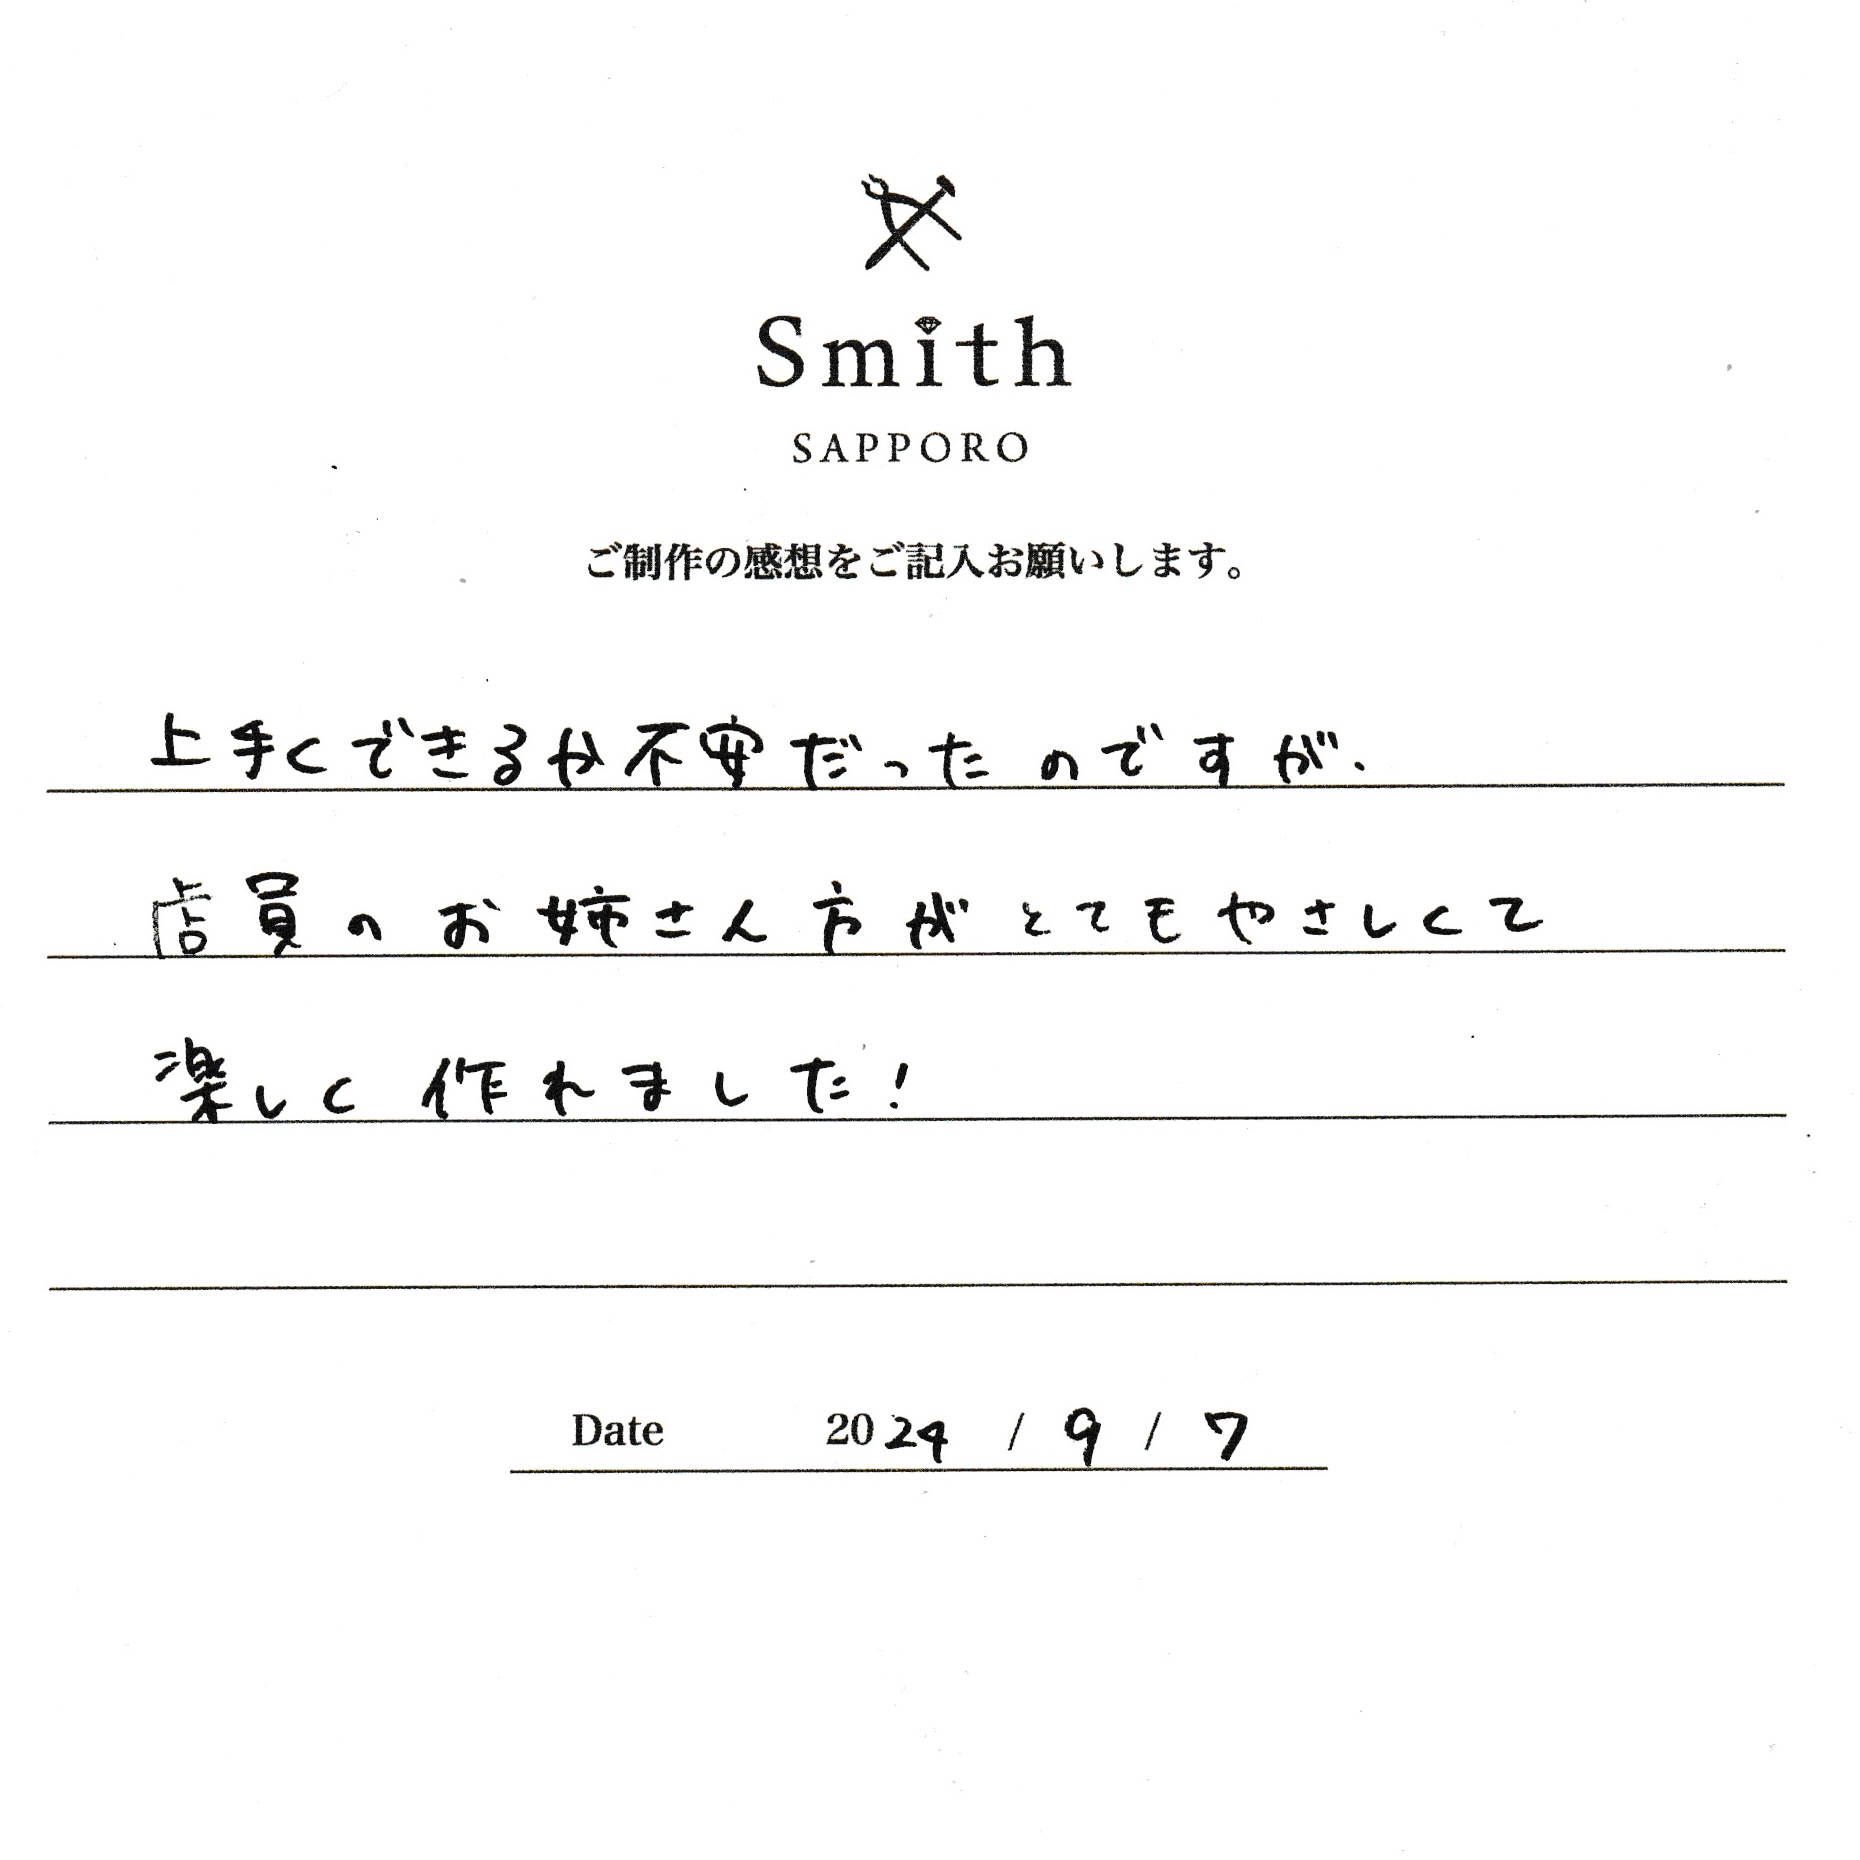 Smith
SAPPORO
ご制作の感想をご記入お願いします。
上手くできるか不安だったのですが、
店員のお姉さん方がとてもやさしくて
楽しく作れました！
Date 2024 / 9 / 7